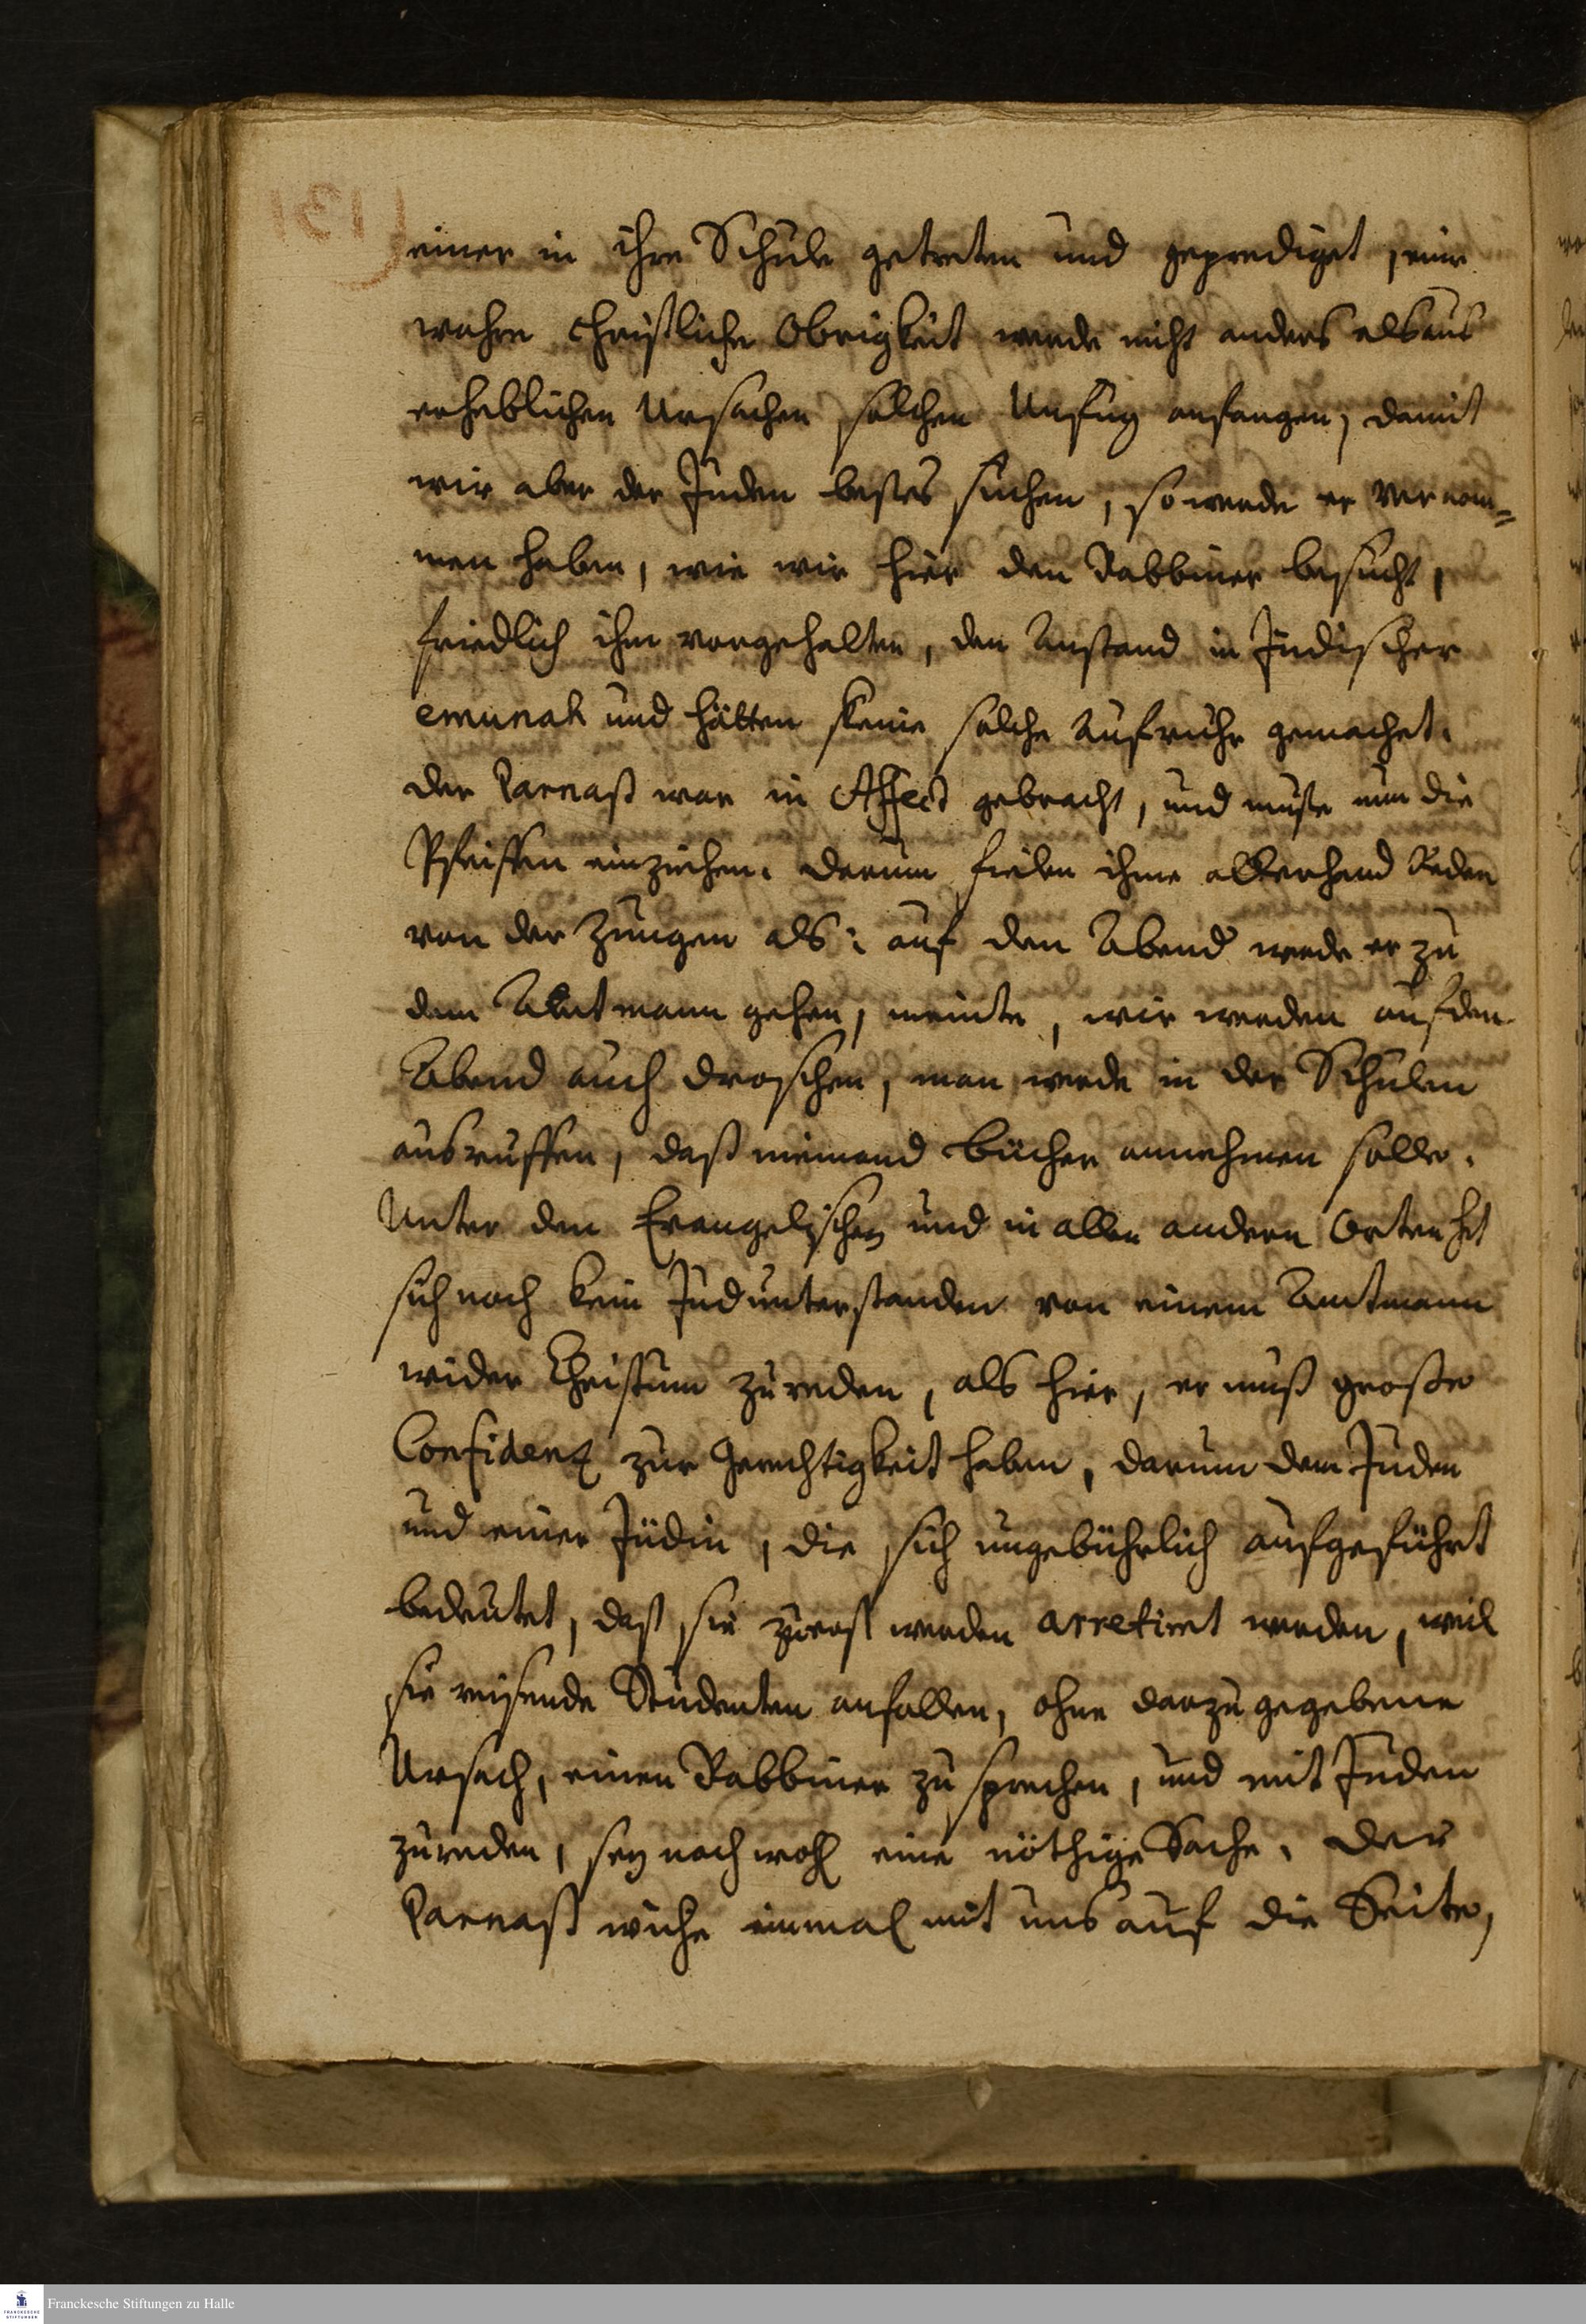 einer in ihre Schule getreten und geprediget, eine
wahre christliche Obrigkeit werde nicht anders als aus
erheblichen Ursachen solchen Unfug anfangen, damit
wir aber der Juden bestes suchen, so werde er vernom=
men haben, wie wir hier den Rabbiner besucht,
friedlich ihm vorgehalten, den Anstand in Jüdischer
emunah und hätten keine solche Aufruhr gemachet.
der Parnaß war in Affect gebracht, und muste nun die
Pfeiffen einziehen. darum fielen ihme allerhand Reden
von der Zungen als: auf den Abend werde er zu
dem Amtmann gehen, meinte, wir werden auf den
Abend auch droschen, man werde in der Schulen
ausruffen, daß niemand bücher annehmen solle.
Unter den Evangelischen und in allen andern Orten hat
sich noch kein Jud unterstanden von einem Amtmann
wider Christum zu reden, als hier, er muß große
Confidenz zur Gerechtigkeit haben, darum dem Juden
und einer Jüdin, die sich ungebührlich aufgeführt
bedeutet, daß sie zuerst werden arretiret werden, weil
sie reisende Studenten anfallen, ohne darzu gegebene
Ursach, einen Rabbiner zu sprechen, und mit Juden
zu reden, sey noch wohl eine nöthige Sache. Der
Parnaß wiche einmal mit uns auf die Seite,
Franckesche Stiftungen zu Halle